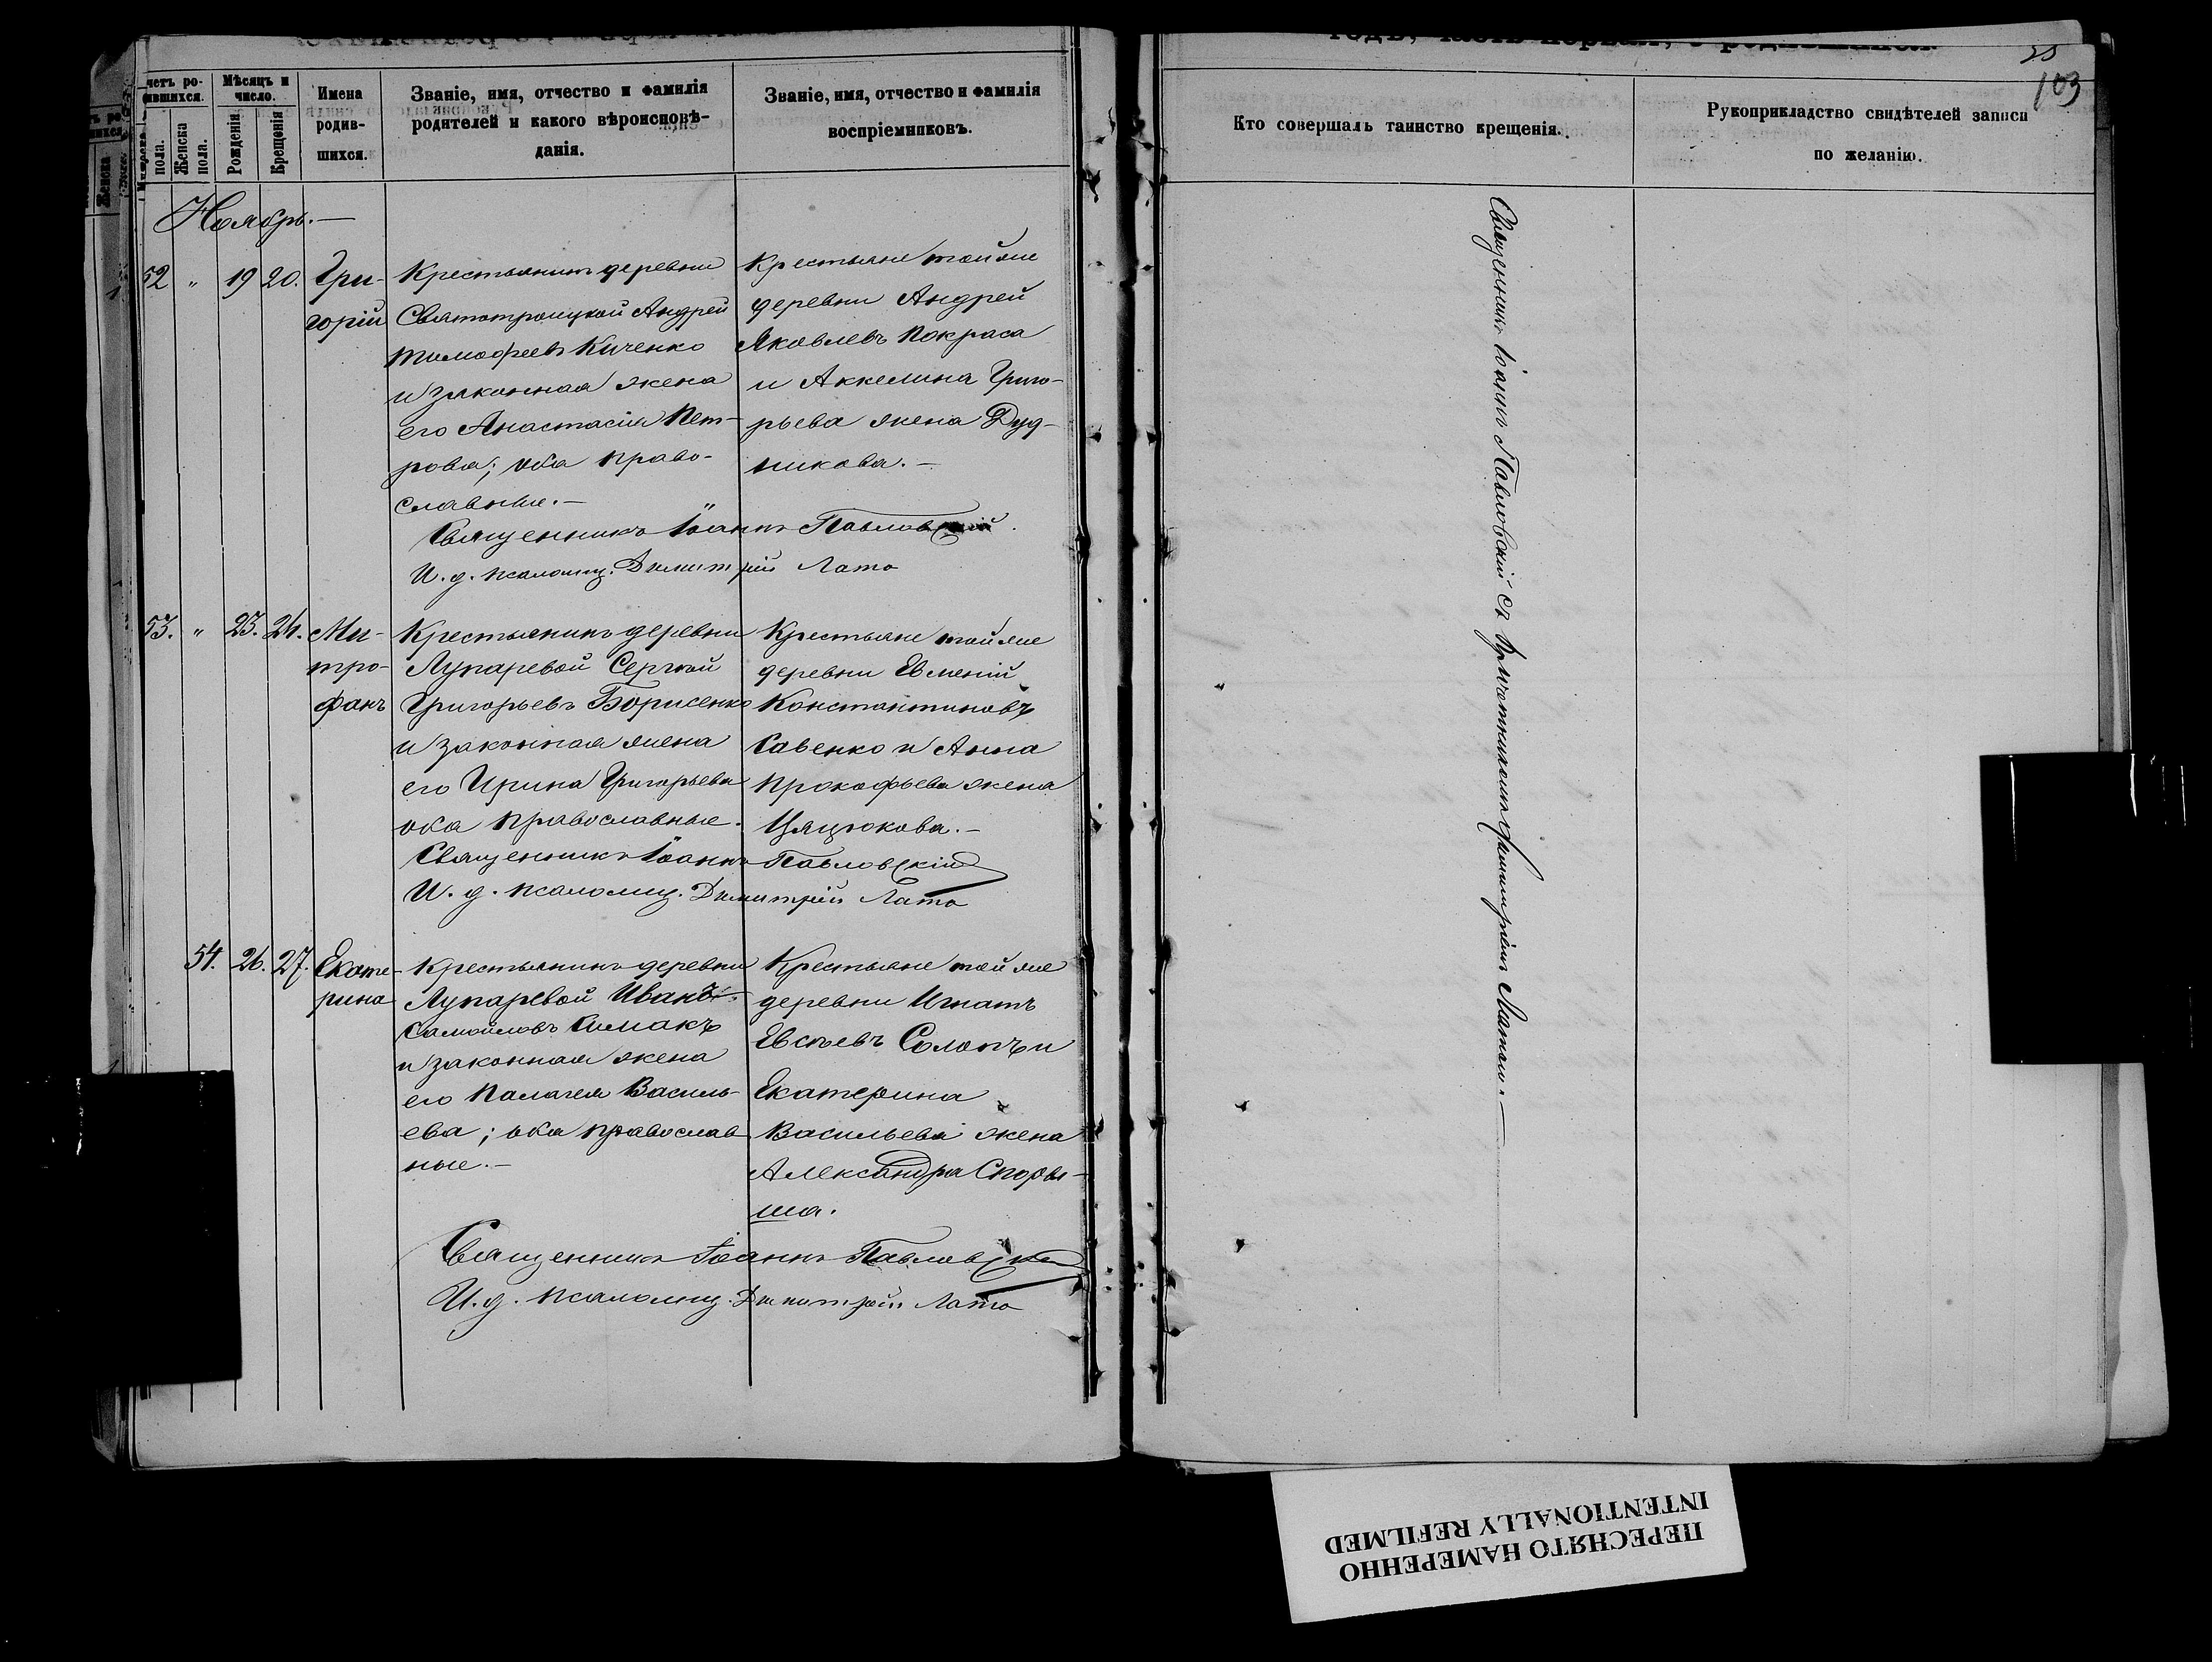 четъ ро-
дившихся.
Мѣсяцъ и
число.
пола.
Женска
пола.
Рожденія.
Крещенія
Имена
родив-
шихся.
Званіе, имя, отчество и фамилія
родителей и какого вѣроисповѣ-
данія.
Званіе, имя, отчество и фамилія
воспріемниковъ.
Ноябрь.—
52 " 19 20.
Гри-
горій
Крестьянинъ деревни
Святотроицкой Андрей
Тимофеевъ Киченко
и законная жена
его Анастасія Пет-
рова; оба право-
славные.—
Крестьяне той же
деревни Андрей
Яковлевъ Покраса
и Аккелина Григо-
рьева жена Дуд-
никова.—
Священникъ Іоаннъ Павловскій
И. д. псаломщ. Димитрій Лато
53. " 23. 24.
Ми-
тро-
фанъ
Крестьянинъ деревни
Лупаревой Сергѣй
Григорьевъ Борисенко
и законная жена
его Ирина Григорьева
оба православные.
Крестьяне той же
деревни Евменій
Константиновъ
Савенко и Анна
Прокофьева жена
Цяцюкова.—
Священникъ Іоаннъ Павловскій
И. д. псаломщ. Димитрій Лато
54. 26. 27.
Екате-
рина
Крестьянинъ деревни
Лупаревой Иванъ
Самойловъ Симакъ
и законная жена
его Палагея Василь-
ева; оба православ
ные.—
Крестьяне той же
деревни Игнатъ
Евсѣевъ Солопъ и
Екатерина
Васильева жена
Александра Споры-
ша.
Священникъ Іоаннъ Павловскій
И. д. псаломщ. Димитрій Лато
103
Кто совершалъ таинство крещенія.
Рукоприкладство свидѣтелей записи
по желанію.
Священникъ Іоаннъ Павловскій съ причетникомъ Димитріемъ Латою.—
ПЕРЕСНЯТО НАМЕРЕННО
INTENTIONALLY REFILMED